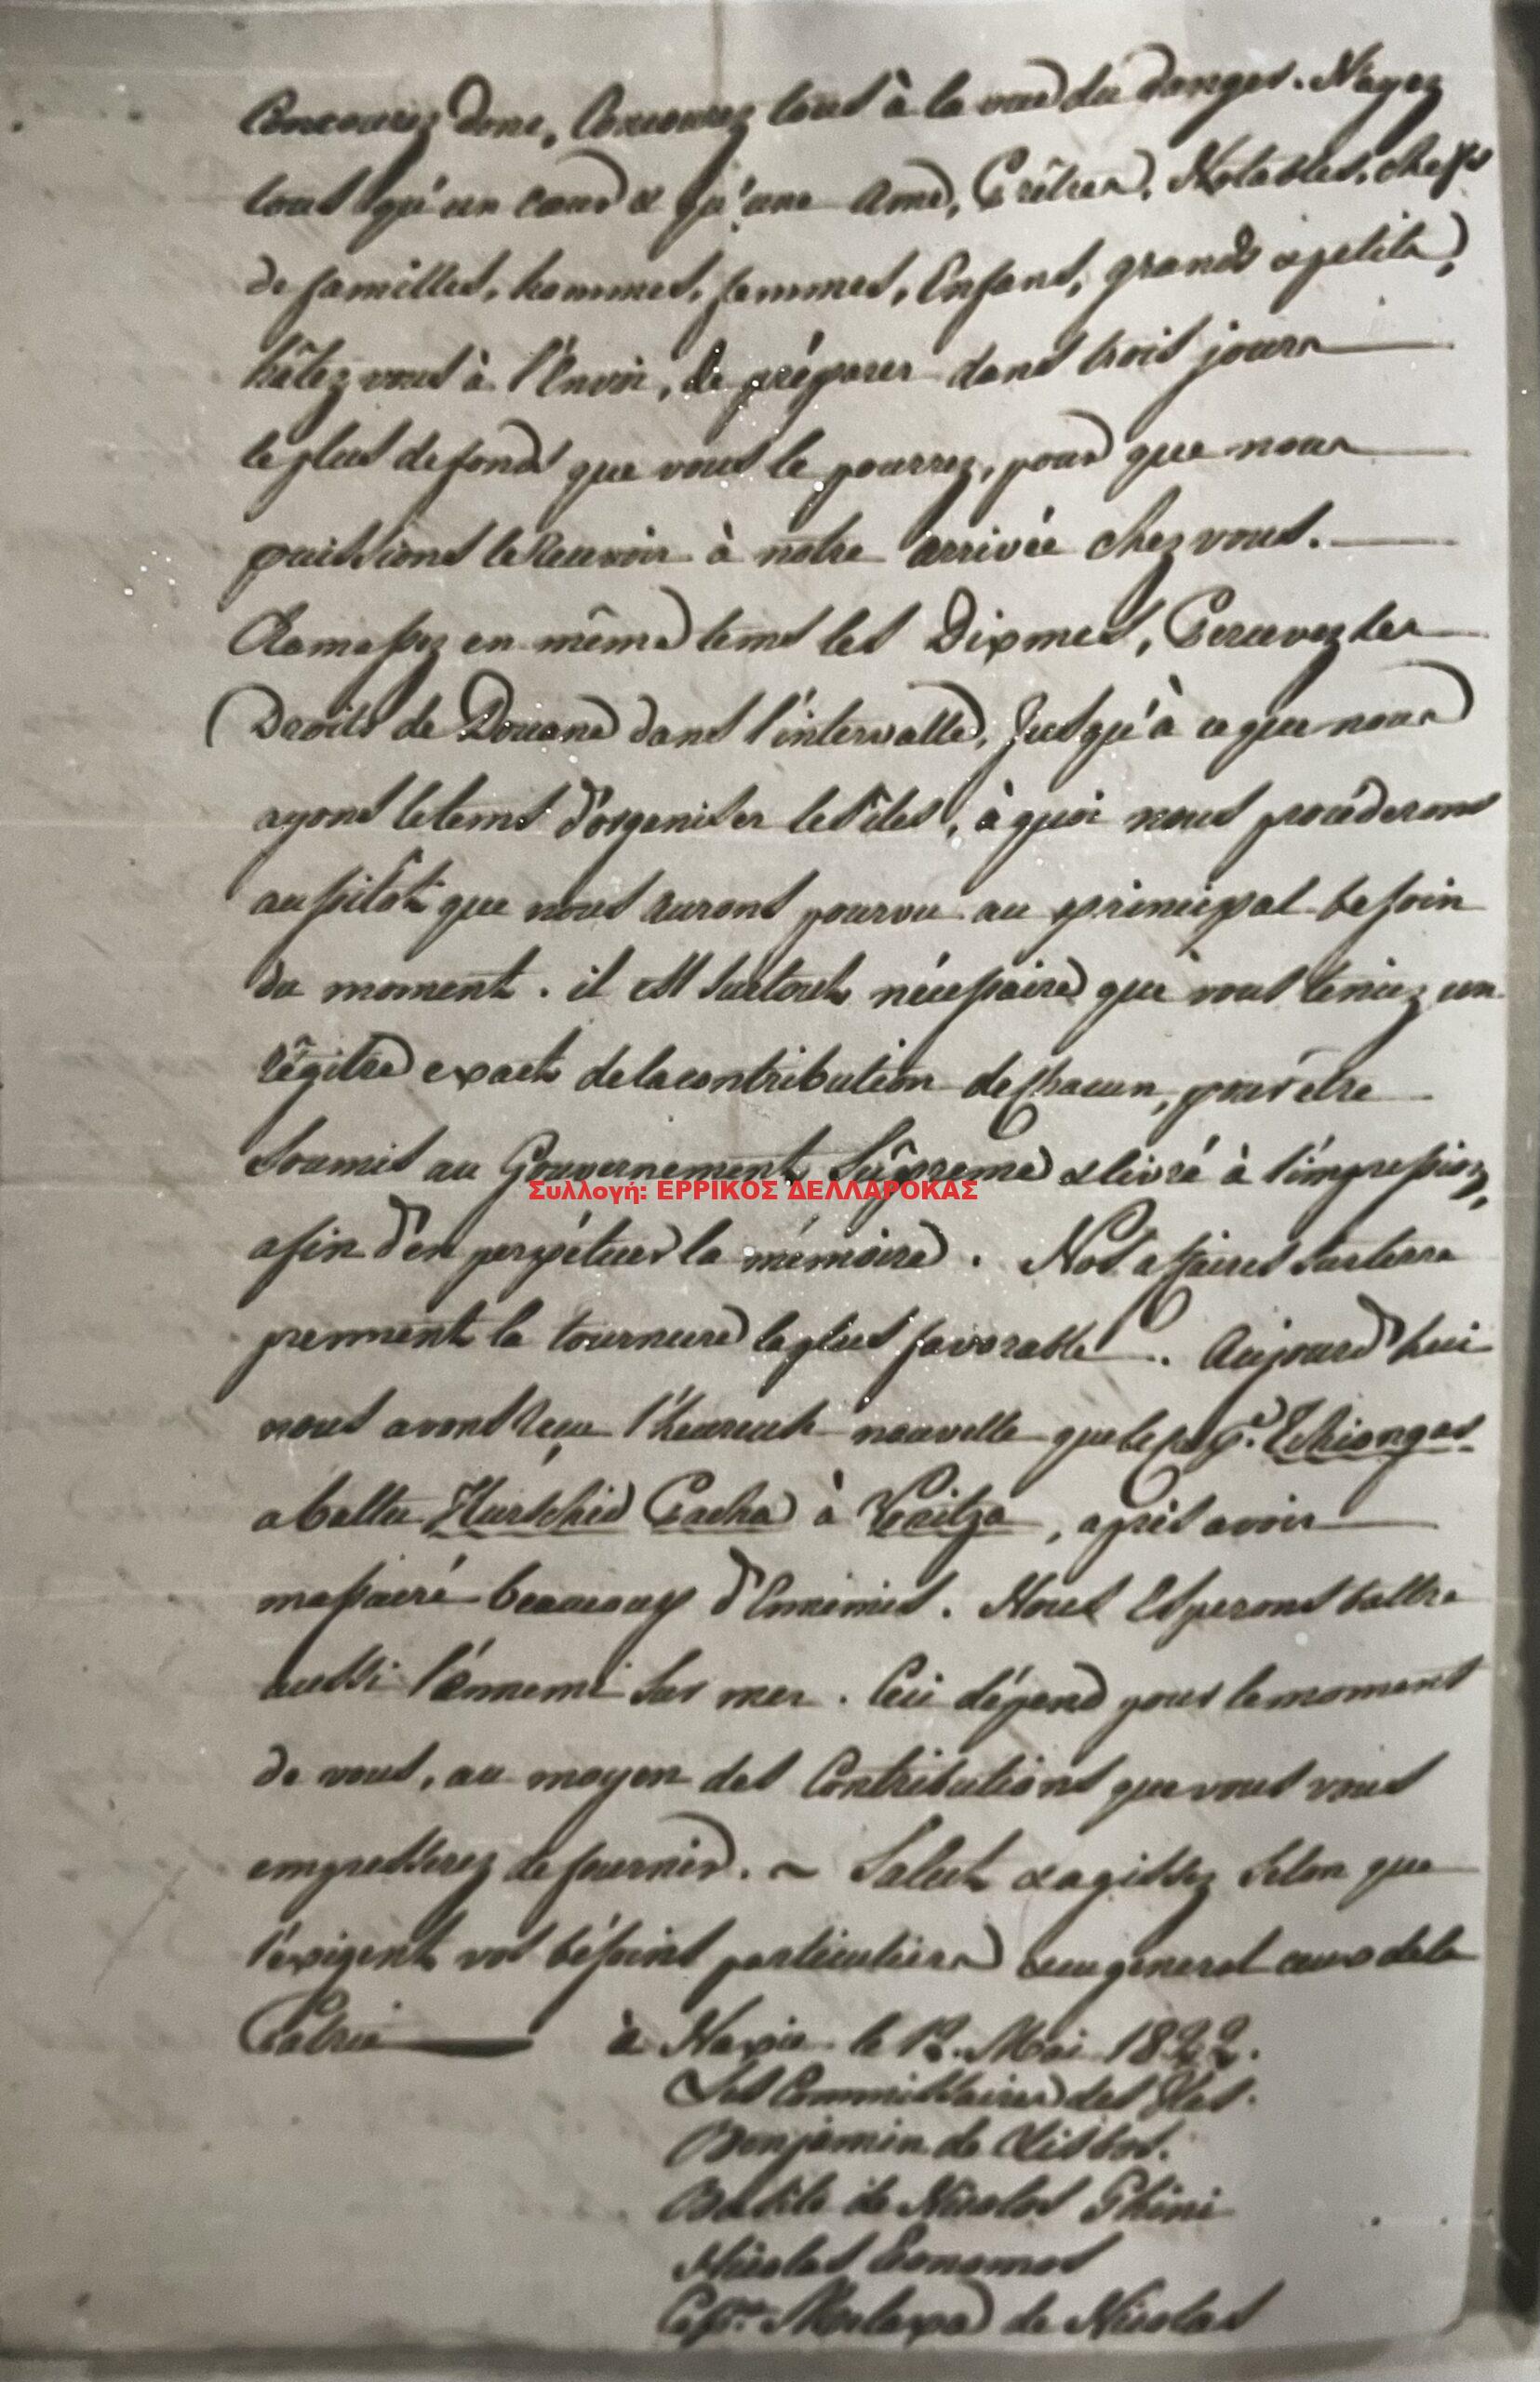 Concourez donc, Concourez tous à la vue du danger. N'ayez
tous qu'un cœur & qu'une ame, Prêtres, Notables, chefs
de familles, hommes, femmes, Enfans, grands & petits,
hâtez vous à l'Envoi, de préparer dans trois jours
le plus de fonds que vous le pourrez, pour que nous
puissions le Recevoir à notre arrivée chez vous.
Ramassez en même tems les Dixmes, Percevez les
Droits de Douane dans l'intervalle, Jusqu'à ce que nous
ayons le tems d'organiser les îles, à quoi nous procéderons
aussitôt que nous aurons pourvu au principal besoin
du moment. il est surtout nécessaire que vous teniez un
régitre exact de la contribution de Chacun, pour être
Soumis au Gouvernement Suprême & livré à l'impression,
afin d'en perpétuer la mémoire. Nos affaires sur terre
prennent la tournure la plus favorable. Aujourd'hui
nous avons reçu l'heureuse nouvelle que le
a battu Hurschid Pacha à, après avoir
massacré beaucoup d'Ennemis. Nous Esperons battre
aussi l'énnemi Sur mer. Ceci dépend pour le moment
de vous, au moyen des Contributions que vous vous
empresserez de fournir. ~ Salut & agissez Selon que
l'éxigent vos bésoins particuliers general ceux de la
Patrie à Naxie le 12. Mai 1822.
Les Commissaires des Iles.
Benjamin de Lesbos.
Basile de Nicolas Ghini
Nicolas Economos
de Nicolas
Συλλογή: ΕΡΡΙΚΟΣ ΔΕΛΛΑΡΟΚΑΣ